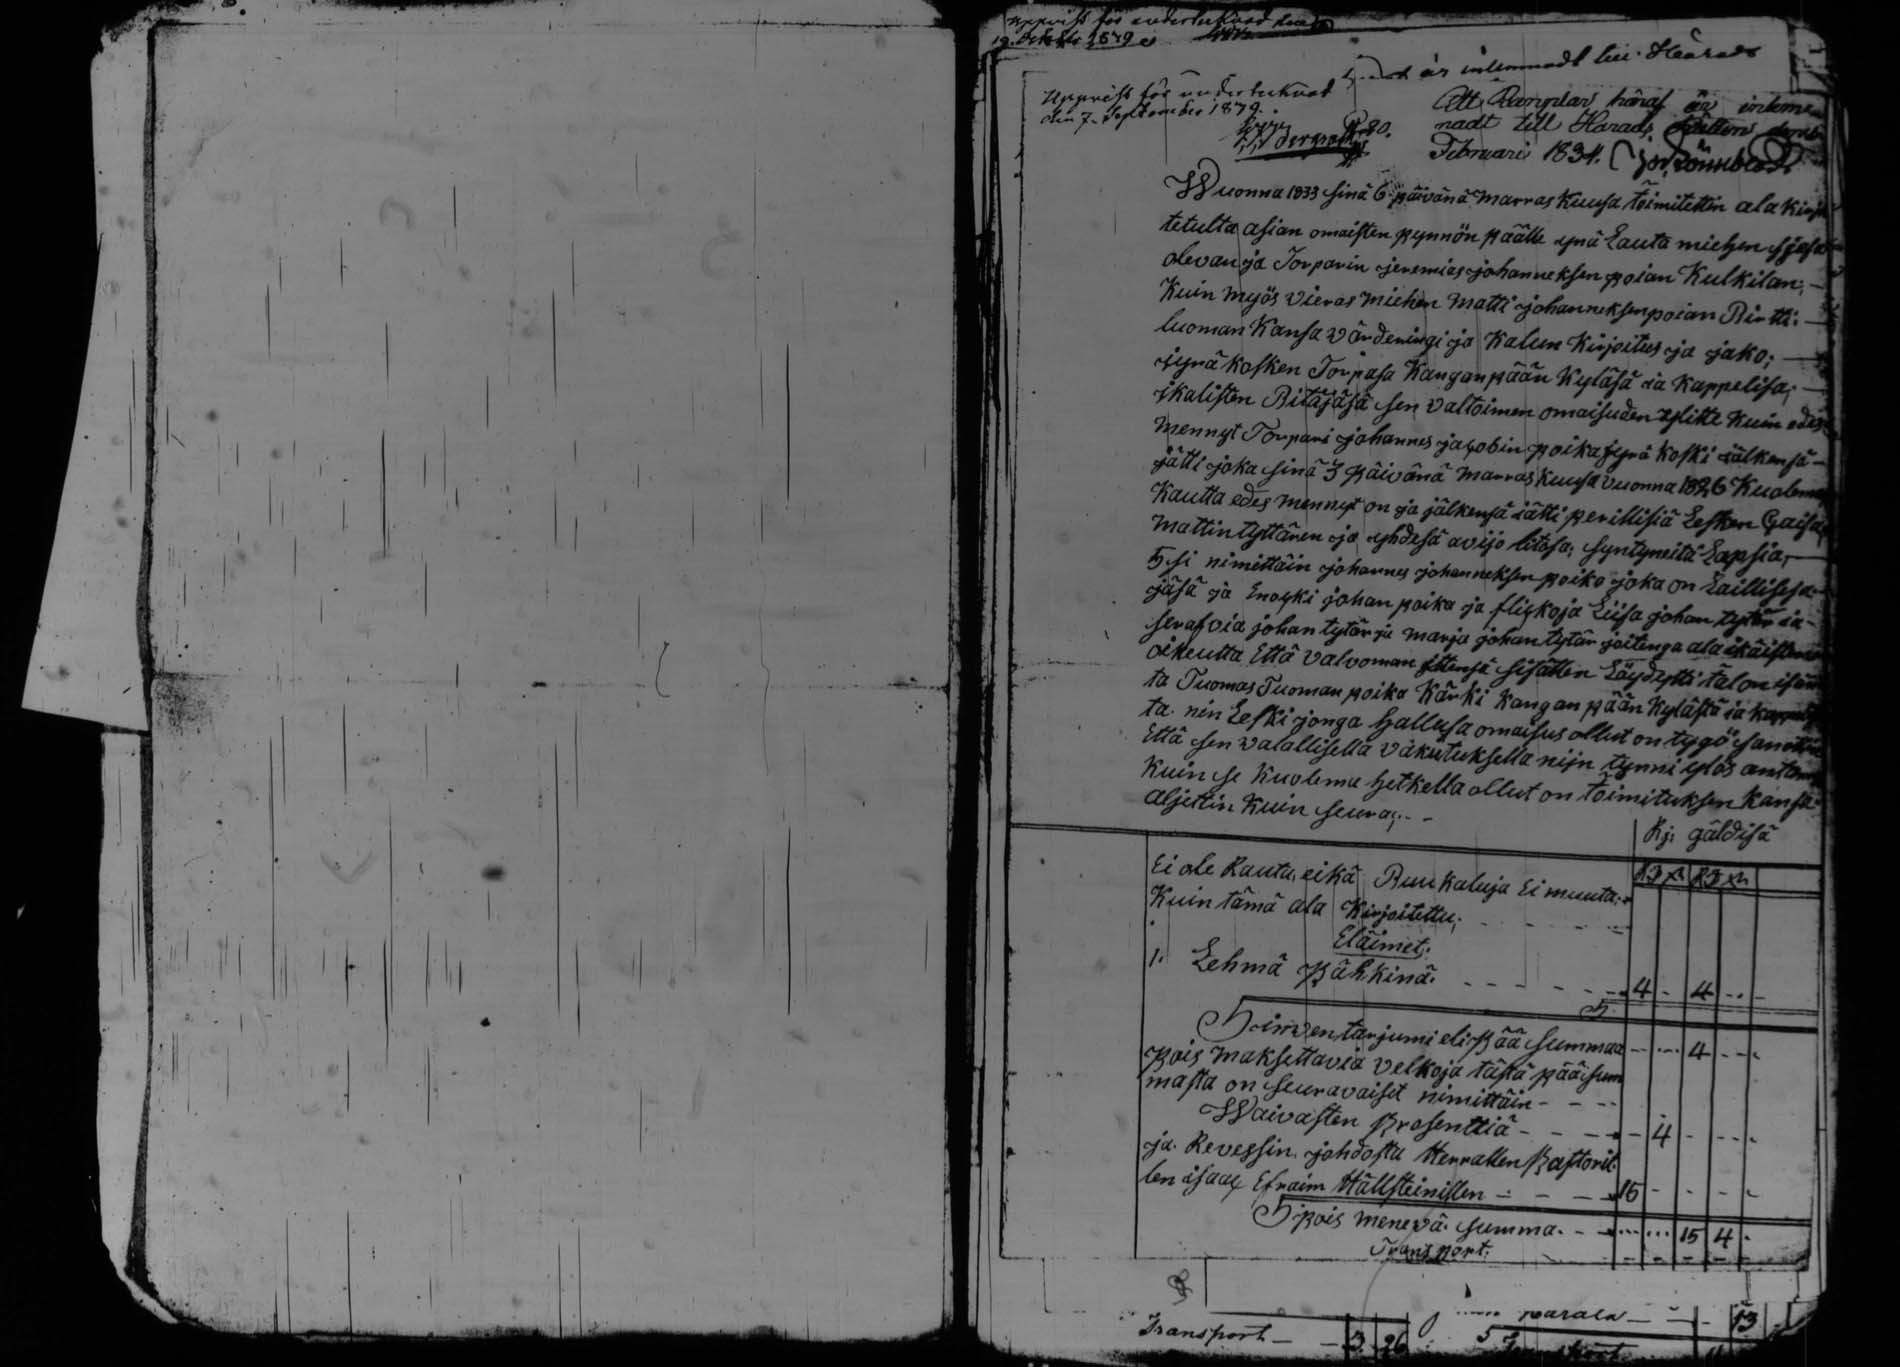 Uppvist för undertecknad
19. October 1879
är inlemnadt till Härads
Uppvist för undertecknad
den 7. September 1879.
Att Exemplar häraf är inlem-
nadt till Härads Rätten
Februari 1834.
Wuonna 1833 sinä 6 päivänä Marras Kuusa toimitettin ala kirja
tetulta asian omaisten pyynnön päälle ynä Lauta miehen siasa
olevan ja Torparin jeremias johanneksen poian Kulkilan; —
Kuin myös vieras miehen Matti johanneksenpoian Pirtti: —
luoman Kansa värderingi ja Kalun Kirjoitus ja jako; —
jyrä kosken Torpasa Kangan pään Kyläsä ia Kappelisa; —
ikalisten Pitäjäsä sen valtoimen omaisuden ylitte Kuin edes
mennyt Torpari johannes jacobin poika jyrä koski iälkensä —
jätti joka sinä 3 päivänä Marras Kuusa vuonna 1826 Kuoleman
Kautta edes mennyt on ja jälkensä iätti perillisiä Lesken Caisa
Mattin tyttären ja yhdesä avijo litosa; syntyneitä Lapsia, —
5si nimittäin johannes johanneksen poika joka on Laillisesa
jäsä ja Enocki johan poika ja flickoja Liisa johan tytär ia
serafvia johan tytär ja marja johan tytär joitenga ala ikäisten
oikeutta Että valvoman ittensä sisätten Löydytti talon isän
ta Tuomas Tuoman poika Kärki Kangan pään Kylästä ia Kappeli
ta. nin Leski jonga hallusa omaisus ollut on tygö sanottin
Että sen valallisella vakutuksella nijn tynni ylös antaman
Kuin se Kuolema hetkella ollut on toimituksen Kansa
aljettin Kuin seura; - -
Kj: gäldisä
Ei ole Rauta, eikä Puu kaluja Ei muuta;
Kuin tämä ala Kirjoitettu;
Eläimet.
1. Lehmä Pähkinä. - - - - 4 - 4 - - -
S inventarjumi eli Pää summaa - - - 4 - - -
Pois Maksettavia velkoja tästä pääsum
masta on seuravaiset nimittäin - - -
Waivasten Prosenttiä - - - - 4 - - - -
ja. Revessin. johdosta Herrallen Pastoril
len isaac Efraim Hällsteinillen - - - 15 - - - -
S pois menevä. summa. - - - - - 15 4 -
Transport.
parala - - 13
Transport - - 3 26